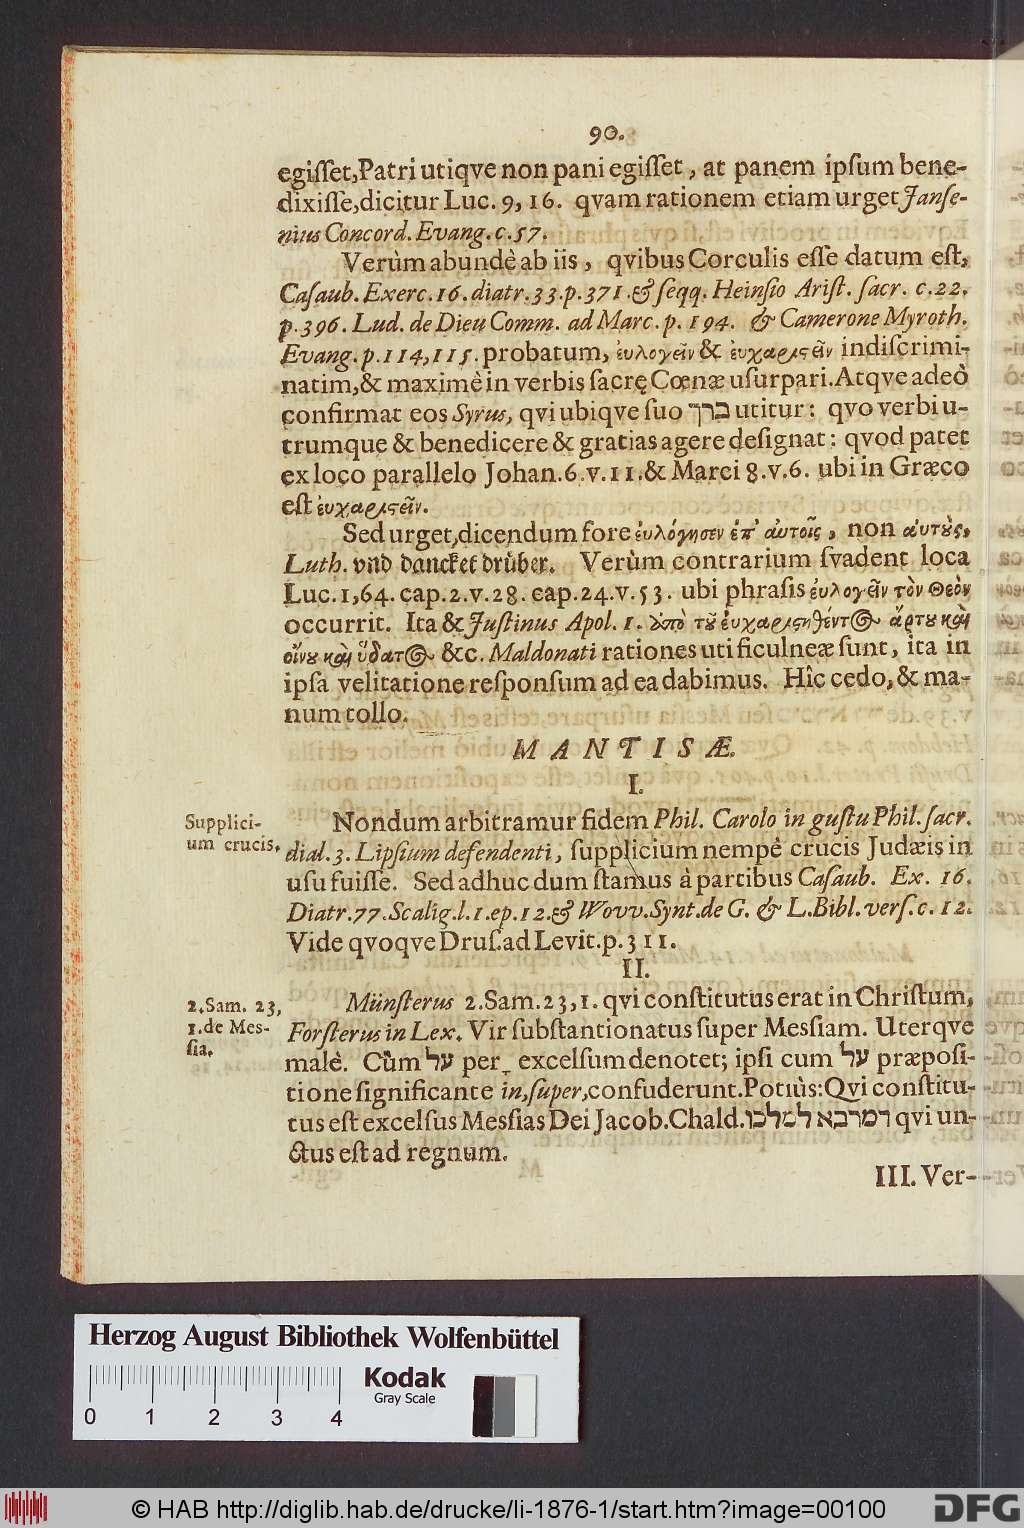 90.
egiſſet, Patri utiqve non pani egiſſet, at panem ipſum bene-
dixiſſe, dicitur Luc. 9, 16. qvam rationem etiam urget Janſe-
nius Concord. Evang. c. 57.
Verùm abundè ab iis, qvibus Corculis eſſe datum eſt,
Caſaub. Exerc. 16. diatr. 33. p. 371. & ſeqq. Heinſio Ariſt. ſacr. c. 22.
p. 396. Lud. de Dieu Comm. ad Marc. p. 194. & Camerone Myroth.
Evang. p. 114, 115. probatum, ἐυλογεῖν & ἐυχαριςεῖν indiſcrimi-
natim, & maximè in verbis ſacrę Cœnæ uſurpari. Atqve adeò
confirmat eos Syrus, qvi ubiqve ſuo ברך utitur: qvo verbi u-
trumque & benedicere & gratias agere deſignat: qvod patet
ex loco parallelo Johan. 6. v. 11. & Marci 8. v. 6. ubi in Græco
eſt ἐυχαριςεῖν.
Sed urget, dicendum fore ἐυλόγησεν ἐπ' ἀυτοῖς, non ἀυτὸς,
Luth. vnd dancket drüber. Verùm contrarium ſvadent loca
Luc. 1, 64. cap. 2. v. 28. cap. 24. v. 53. ubi phraſis ἐυλογεῖν τὸν Θεὸν
occurrit. Ita & Juſtinus Apol. 1. ὑπὸ τȣ͂ ἐυχαριςηθέντ@ ἄρτȣ καὶ
οἴνȣ καὶ ὕδατ@ &c. Maldonati rationes uti ficulneæ ſunt, ita in
ipſa velitatione reſponſum ad ea dabimus. Hîc cedo, & ma-
num tollo.
MANTISÆ.
I.
Supplici-
um crucis.
Nondum arbitramur fidem Phil. Carolo in guſtu Phil. ſacr.
dial. 3. Lipſium defendenti, ſupplicium nempè crucis Judæis in
uſu fuiſſe. Sed adhuc dum ſtamus à partibus Caſaub. Ex. 16.
Diatr. 77. Scalig. l. 1. ep. 12. & Wovv. Synt. de G. & L. Bibl. verſ. c. 12.
Vide qvoqve Druſ. ad Levit. p. 311.
II.
2. Sam. 23,
1. de Mes-
ſia.
Münſterus 2. Sam. 23, 1. qvi conſtitutus erat in Chriſtum,
Forſterus in Lex. Vir ſubſtantionatus ſuper Mesſiam. Uterqve
malè. Cûm על per, excelſum denotet; ipſi cum על præpoſi-
tione ſignificante in, ſuper, confuderunt. Potiùs: Qvi conſtitu-
tus eſt excelſus Mesſias Dei Jacob. Chald. דמרבא למלכו qvi un-
ctus eſt ad regnum.
III. Ver-
Herzog August Bibliothek Wolfenbüttel
Kodak
Gray Scale
0 1 2 3 4
© HAB http://diglib.hab.de/drucke/li-1876-1/start.htm?image=00100
DFG